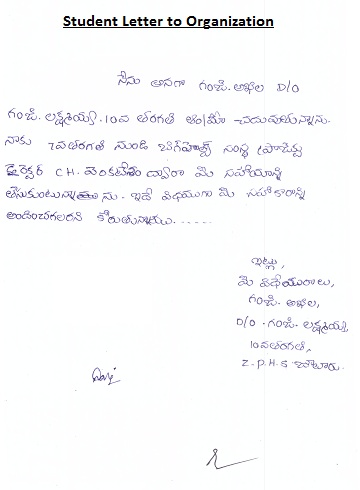 Student Letter to Organization
నేను అనగా గంజి. అఖిల D/O
గంజి. లక్ష్మయ్య. 10వ తరగతి చదువుతున్నాను.
నాకు 7వతరగతి నుండి సంస్థ ప్రాజెక్టు
డైరెక్టర్ CH. వెంకటేశం ద్వారా మీ సహాయాన్ని
తీసుకుంటున్నాను. ఇదే విధముగా మీ సహాకారాన్ని
అందించగలరని కోరుతున్నాము......
ఇట్లు,
మీ విధేయురాలు,
గంజి. అఖిల,
D/O. గంజి. లక్ష్మయ్య
10వతరగతి,
Z.P.H.S